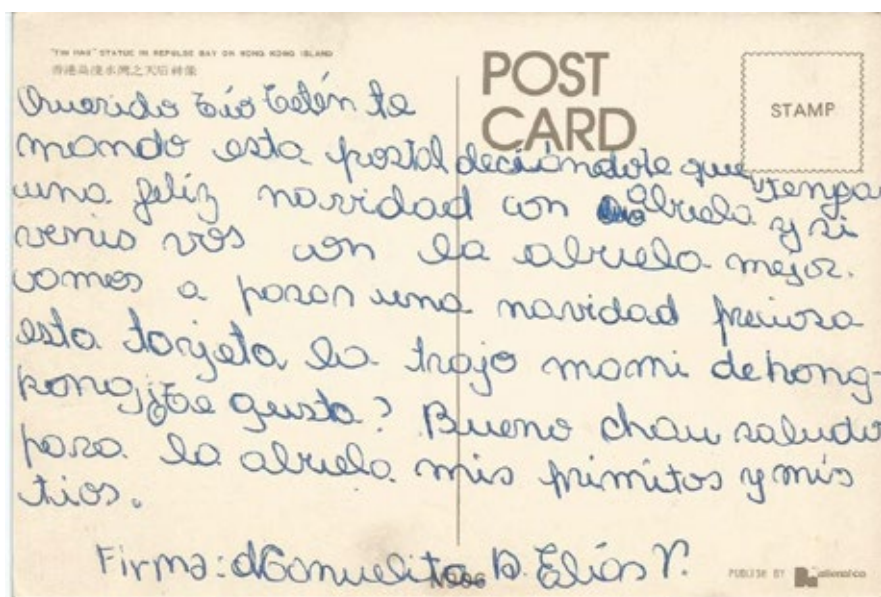 "TIN HAU" STATUE IN REPULSE BAY ON HONG KONG ISLAND
香港島淺水灣之天后神像
POST
CARD
STAMP
Querido tío Telén te
mando esta postal deciéndote que tenga
una felíz navidad con abuela y si
venis vos con la abuela mejor.
vamos a pasar una navidad preciosa
esta tarjeta la trajo mami de hong-
kong ¿te gusta? Bueno chau saludo
para la abuela mis primitos y mis
tios.
Firma: Manuelito D. Elías V.
PUBLISH BY National co